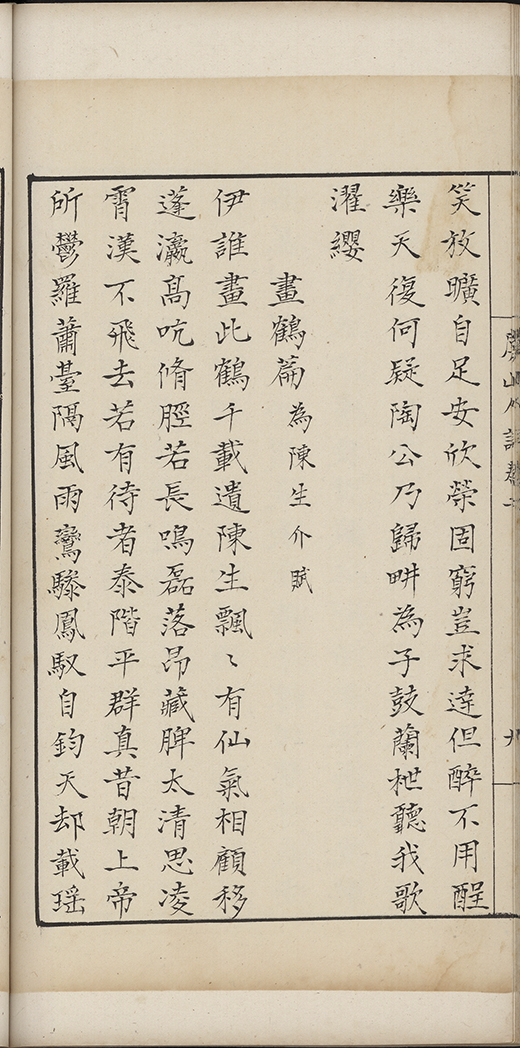 笑放曠自足安欣榮固窮豈求達但醉不用酲
樂天復何疑陶公乃歸畊為子鼓蘭枻聽我歌
濯纓
畫鶴篇為陳生介賦
伊誰畫此鶴千載遺陳生飄〻有仙氣相顧移
蓬瀛高吭脩脛若長鳴磊落昂藏脾太清思凌
霄漢不飛去若有待者泰階平群真昔朝上帝
所鬱羅蕭臺隔風雨鸞驂鳳馭自鈞天却載瑶